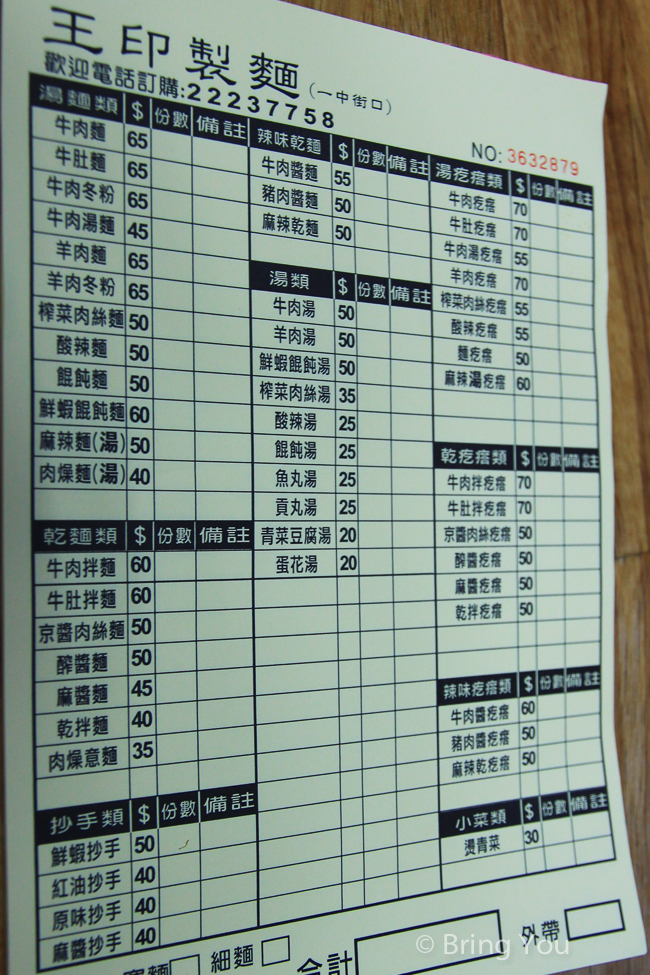 王印製麵(一中街口)
歡迎電話訂購:22237758
NO: 3632879
湯麵類 $ 份數 備註
牛肉麵 65
牛肚麵 65
牛肉冬粉 65
牛肉湯麵 45
羊肉麵 65
羊肉冬粉 65
榨菜肉絲麵 50
酸辣麵 50
餛飩麵 50
鮮蝦餛飩麵 60
麻辣麵(湯) 50
肉燥麵(湯) 40
乾麵類 $ 份數 備註
牛肉拌麵 60
牛肚拌麵 60
京醬肉絲麵 50
醡醬麵 50
麻醬麵 45
乾拌麵 40
肉燥意麵 35
抄手類 $ 份數 備註
鮮蝦抄手 50
紅油抄手 40
原味抄手 40
麻醬抄手 40
辣味乾麵 $ 份數 備註
牛肉醬麵 55
豬肉醬麵 50
麻辣乾麵 50
湯類 $ 份數 備註
牛肉湯 50
羊肉湯 50
鮮蝦餛飩湯 50
榨菜肉絲湯 35
酸辣湯 25
餛飩湯 25
魚丸湯 25
貢丸湯 25
青菜豆腐湯 20
蛋花湯 20
湯疙瘩類 $ 份數 備註
牛肉疙瘩 70
牛肚疙瘩 70
牛肉湯疙瘩 55
羊肉疙瘩 70
榨菜肉絲疙瘩 55
酸辣疙瘩 55
麵疙瘩 50
麻辣湯疙瘩 60
乾疙瘩類 $ 份數 備註
牛肉拌疙瘩 70
牛肚拌疙瘩 70
京醬肉絲疙瘩 50
醡醬疙瘩 50
麻醬疙瘩 50
乾拌疙瘩 50
辣味疙瘩類 $ 份數 備註
牛肉醬疙瘩 60
豬肉醬疙瘩 50
麻辣乾疙瘩 50
小菜類 $ 份數 備註
燙青菜 30
寬麵 細麵 合計 外帶
© Bring You